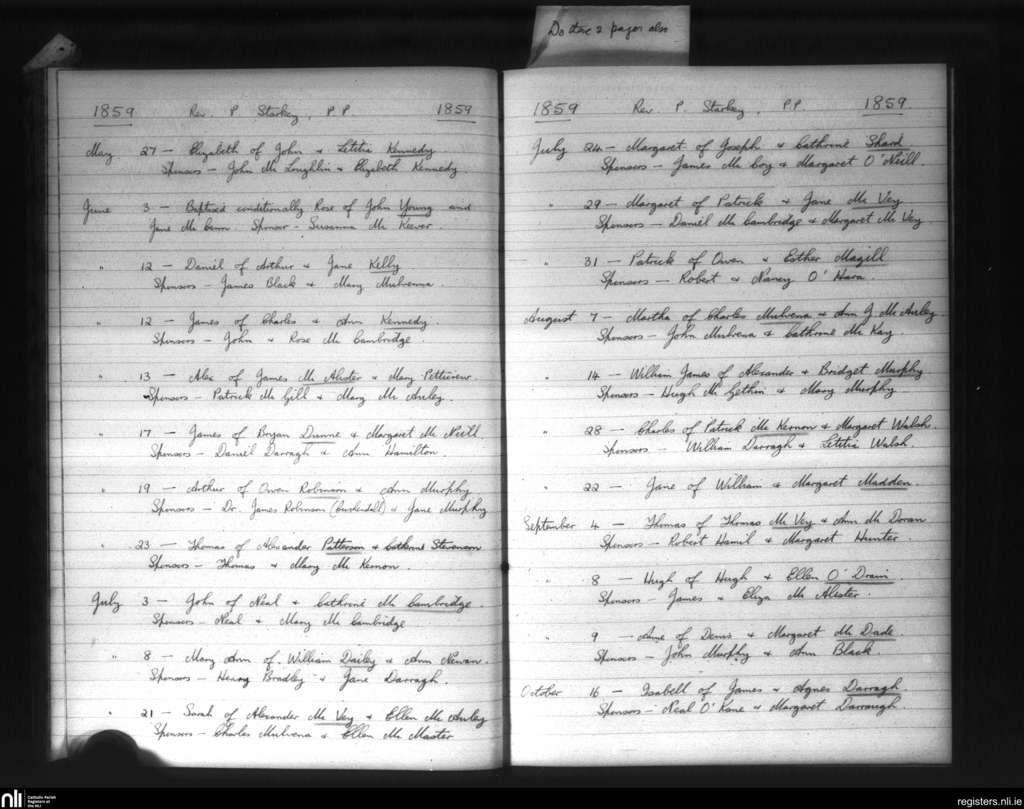 Do these 2 pages also
1859 Rev. P. Starkey, P.P. 1859
May 27 - Elizabeth of John & Letitia Kennedy
Sponsors - John Mc Loughlin & Elizabeth Kennedy.
June 3 - Baptised conditionally Rose of John Young and
Jane Mc Cann. Sponsor - Susanna Mc Keever.
" 12 - Daniel of Arthur & Jane Kelly
Sponsors - James Black & Mary Mulvenna.
" 12 - James of Charles & Ann Kennedy.
Sponsors - John & Rose Mc Cambridge.
" 13 - Alex of James Mc Alister & Mary Petticrew.
Sponsors - Patrick Mc Gill & Mary Mc Auley.
" 17 - James of Bryan Dunne & Margaret Mc Neill.
Sponsors - Daniel Darragh & Ann Hamilton.
" 19 - Arthur of Owen Robinson & Ann Murphy
Sponsors - Dr. James Robinson (Cushendall) & Jane Murphy
" 23 - Thomas of Alexander Patterson & Catherine Stevenson
Sponsors - Thomas & Mary Mc Kernon.
July 3 - John of Neal & Cathrine Mc Cambridge.
Sponsors - Neal & Mary Mc Cambridge
" 8 - Mary Ann of William Dailey & Ann Newan.
Sponsors - Henry Bradley & Jane Darragh.
" 21 - Sarah of Alexander Mc Vey & Ellen Mc Auley
Sponsors - Charles Mulvena & Ellen Mc Master
1859 Rev. P. Starkey, PP. 1859.
July 24 - Margaret of Joseph & Cathrine Shard
Sponsors - James Mc Coy & Margaret O'Neill.
" 29 - Margaret of Patrick & Jane Mc Vey
Sponsors - Daniel Mc Cambridge & Margaret Mc Vey
" 31 - Patrick of Owen & Esther Magill
Sponsors - Robert & Nancy O'Hara.
August 7 - Martha of Charles Mulvena & Ann J. Mc Auley
Sponsors - John Mulvena & Cathrine Mc Kay.
" 14 - William James of Alexander & Bridget Murphy
Sponsors - Hugh Mc Gethin & Mary Murphy.
" 28 - Charles of Patrick Mc Kernon & Margaret Walsh.
Sponsors - William Darragh & Letitia Walsh.
" 22 - Jane of William & Margaret Madden.
September 4 - Thomas of Thomas Mc Vey & Ann Mc Doran
Sponsors - Robert Hamil & Margaret Hunter.
" 8 - Hugh of Hugh & Ellen O'Drain.
Sponsors - James & Eliza Mc Alister.
" 9 - Anne of Denis & Margaret Mc Dade.
Sponsors - John Murphy & Ann Black
October 16 - Isabell of James & Agnes Darragh.
Sponsors - Neal O'Kane & Margaret Darraugh.
nli Catholic Parish Registers at the NLI
registers.nli.ie